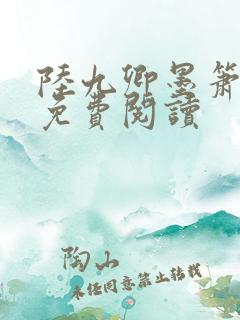 陸九卿墨簫
免費閱讀
陶山
未經同意禁止轉載